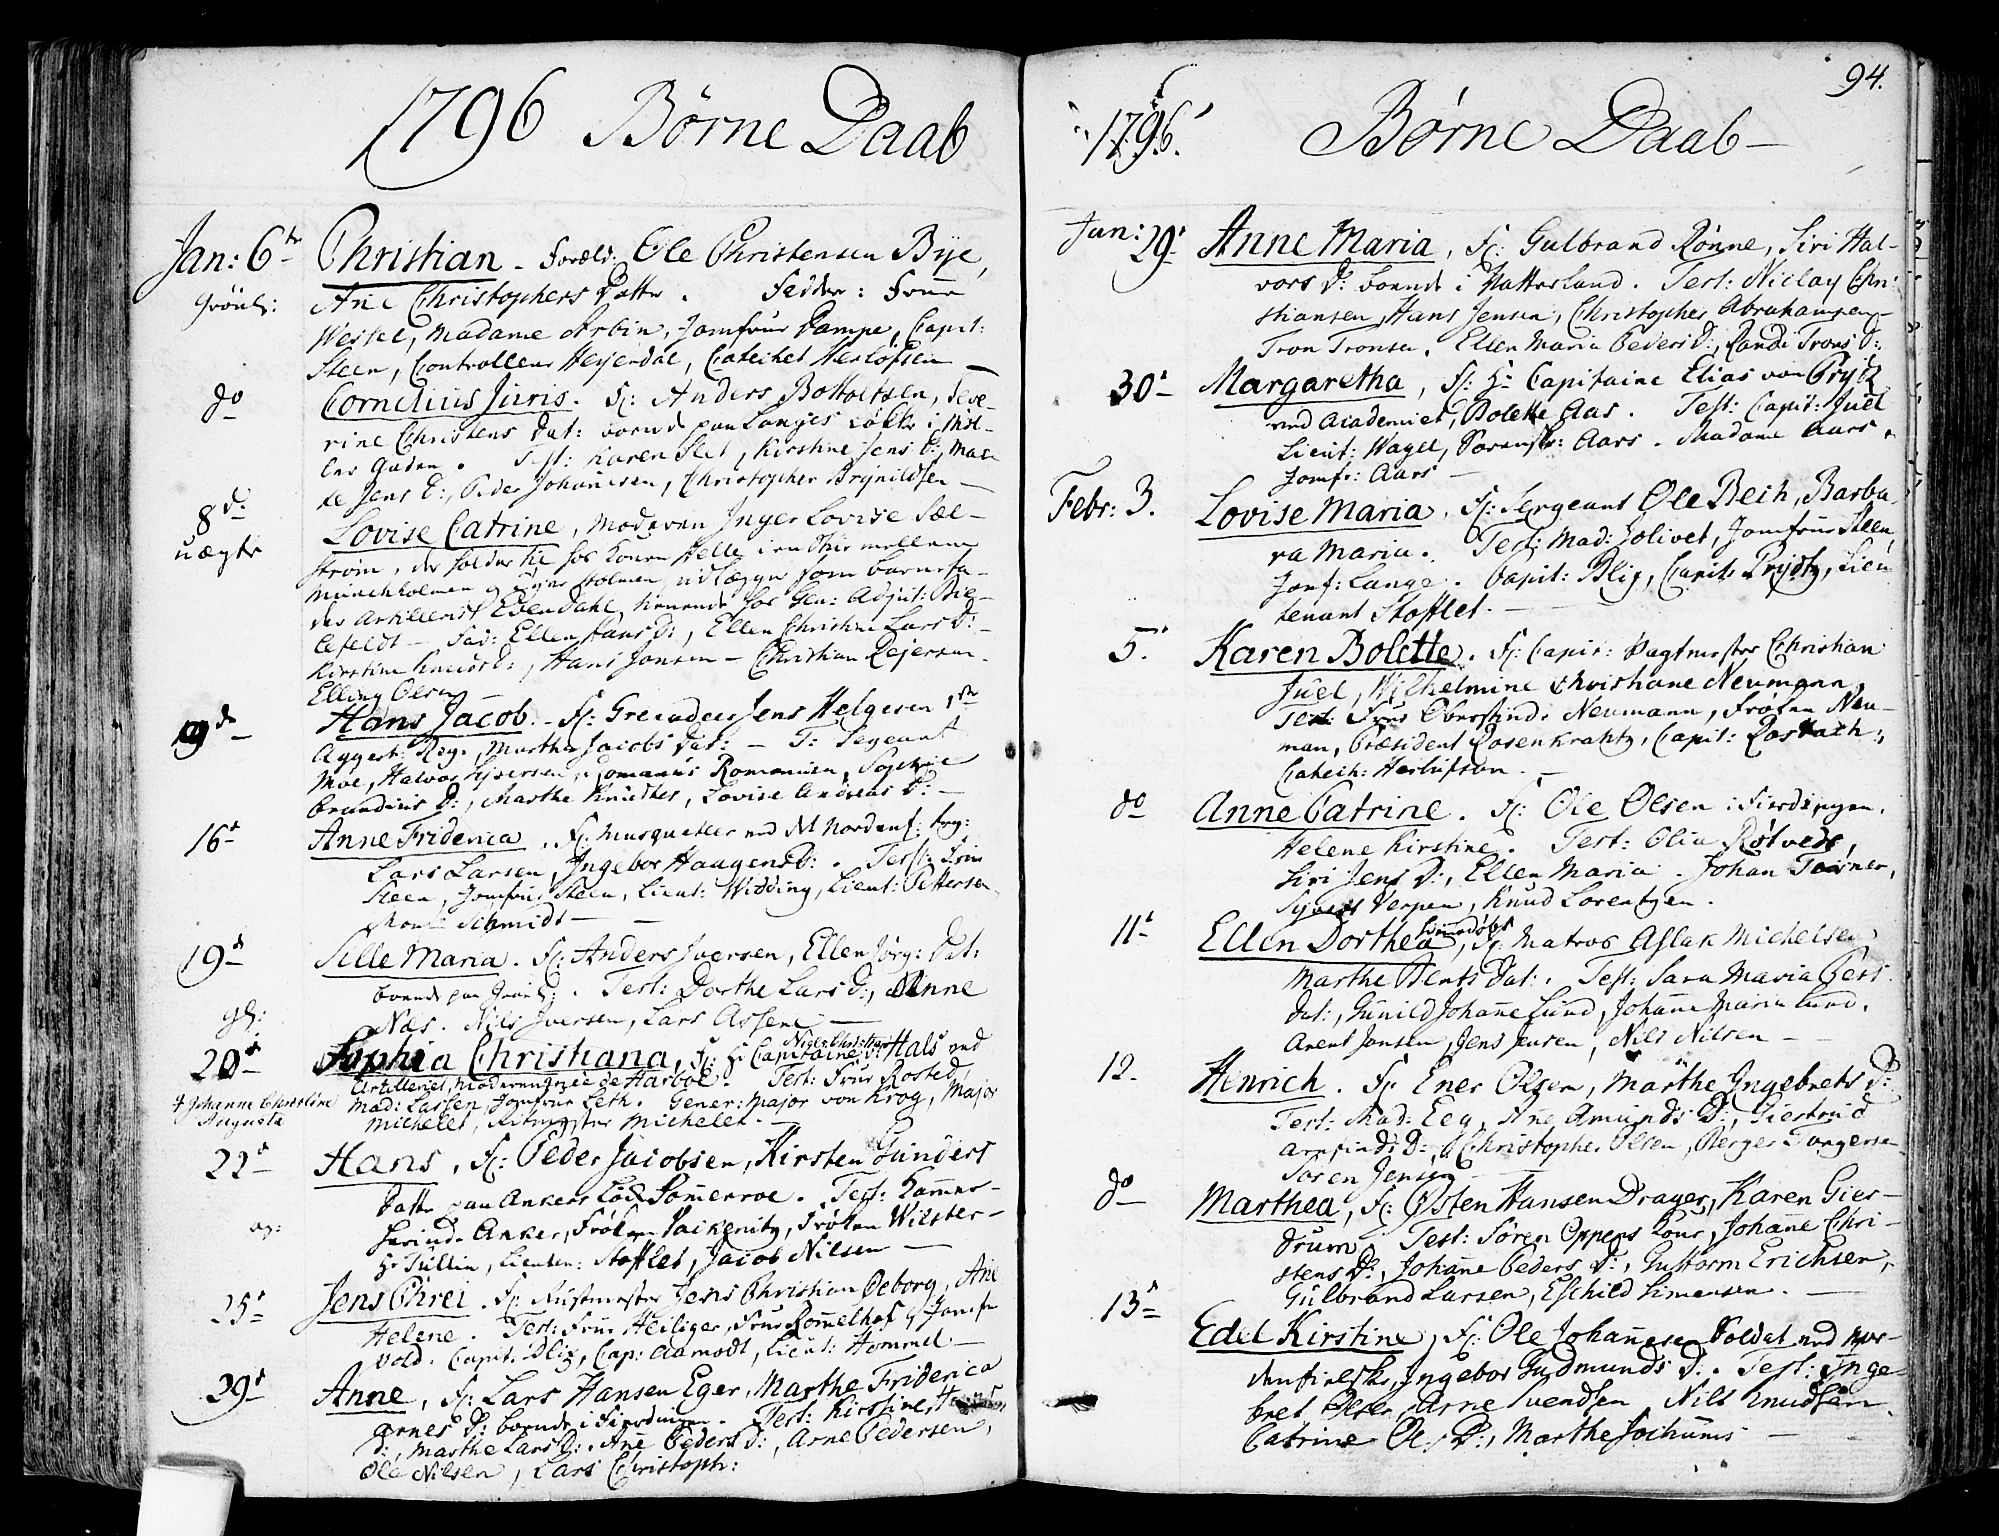 1796 Børne Daab
Jan: 6te Christian - Foræld: Ole Christensen Bye,
Grönl: Ane Christophers Datter. Fadder: Frue
Wessel, Madame Arbin, Jomfrue Dampe, Capit:
Steen, Controlleur Heyerdal, Catechet Herlofsen
do Cornelius Juris. F: Anders Botholtsen, Seve-
rine Christens Dat: boende paa Langes Løkke i Møl-
ler Gaden. Test: Karen Slet, Kirstine Jens D:, Mar-
te Jens D:, Peder Johannesen, Christopher Brynildsen
8d: Lovise Catrine, Moderen Inger Lovise Sæl-
uægte strøm, der holder til hos Konen Helle
Munchholmen, udlægger som barnefa-
der Artillerist Even Dahl, tienende hos Gen: Adjut: Bie-
lefeldt - Fad: Ellen Hans D:, Ellen Christine Lars D:
Kirstine Knuds D:, Hans Jansen - Christian Rejersen.
Elling Olsen
9de Hans Jacob. F: Grenadeer Jens Helgesen 1ste
Aggersh: Reg:, Marthe Jacobs Dat: - T: Sergeant
Moe, Halvor Syversen, Romanus Romanusen, Sophie
D:, Marthe Knudtes, Lovise Andreas D:
16d Anne Friderica, F: Musqueteer ved det Nordenf: Reg:
Lars Larsen, Ingebor Haagens D:. Test: Frue
Steen, Jomfrue Steen, Lieut: Widding, Lieut: Pettersen
Mons: Schmidt
19d Sille Maria. F: Anders Iversen, Ellen Jörg: Dat:
boende paa Grönl:. Test: Dorthe Lars D:, Anne
Næs. Nils Iversen, Lars Assene
gl:
20d Sophia Christiana, F: Hr Capitaine Hals ved
Artilleriet, Moderen de Harboe. Test: Frue Rosted,
† Johanne Christine Mad: Lassen, Jomfrue Leth. Gener: Major von Krog, Major
Augusta Michelet, Ritmester Michelet.
22d Hans, F: Peder Jacobsen, Kirsten Gunders
Datter paa Ankers Lød. Sommerroe. Test: Kammer-
ag: herinde Anker, Fröken Packenitz, Fröken Wilster
Hr Tullin, Lieuten: Stofflet, Jacob Nilsen
25d Jens Chrei. F: Rustmester Jens Christian Oeborg, Ane
Helene. Test: Frue Heiliger, Frue Rømmelhof, Jomfr
Vold. Capit: Blix, Cap: Aamodt, Lieut: Hommel
29d Anne, F: Lars Hansen Eger, Marthe Friderica
Arnes D: boende i Fierdingen. Test: Kirstine Hans
D:, Marthe Lars D:. Ane Peders D:, Arne Pedersen,
Ole Nilsen, Lars Christoph:
94.
1796. Børne Daab
Jan: 29d Anne Maria, F: Gulbrand Rønne, Siri Hal-
vors D: boende i Hatterland. Test: Niclay Chri-
stiansen, Hans Jensen, Christopher Abrahamsen
Tron Tronsen. Ellen Maria Peders D:, Rande Trons D:
30d Margaretha, F: Hr Capitaine Elias von Prytz
ved Academiet, Bolette Aas. Test: Capit: Juel
Lieut: Wagel, Sorenskr: Aars. Madame Aars,
Jomf: Aars
Febr: 3. Lovise Maria, F: Sergeant Ole Bech, Barba-
ra Maria. Test: Mad: Jolivet, Jomfrue Steen,
Jomf: Lange. Capit: Blix, Capit: Prydtz, Lieu
tenant Stofflet.
5. Karen Bolette. F: Capit: Vagtmester Christian
Juel, Wilhelmine Christiane Neumann,
Test: Frue Oberstinde Neumann, Frøken Neu-
man, Præsident Rosenkrantz, Capit: Rosbach,
Catech: Herlufson.
do Anne Catrine. F: Ole Olsen i Fierdingen,
Helene Kirstine. Test: Olia Røtvedt,
Siri Jens D:, Ellen Maria. Johan Teisner,
Syvert Verpen, Knud Lorentzen.
11d Ellen Dorthea, F: Matros Aslak Michelsen
Marthe Bents Dat:. Test: Sara Maria Bers
Dat:, Gunild Johanne Lund, Johanne Maria Lund,
Arent Jansen, Jens Jensen, Nils Nilsen
12. Henrich. F: Ener Olsen, Marthe Ingebrets D:
Test: Mad: Eeg, Ane Amunds D:, Siertrud
Arnfinds D:, Christopher Olsen, Berger Torgersen
Søren Jensen
do Marthea, F: Østen Hansen Drager, Karen Gier-
drum. Test: Søren Oppens Kone, Johanne Chri-
stens D:, Johanne Peders D:, Guttorm Erichsen,
Gulbrand Larsen, Eschild Simensen.
13d Edel Kirstine, F: Ole Johannesen Soldat ved Nor-
denfielske, Ingebor Gudmunds D:. Test: Inge-
bret Olsen, Arne Svendsen Nils Knudsen
Catrine Ols D:, Marthe Jochums